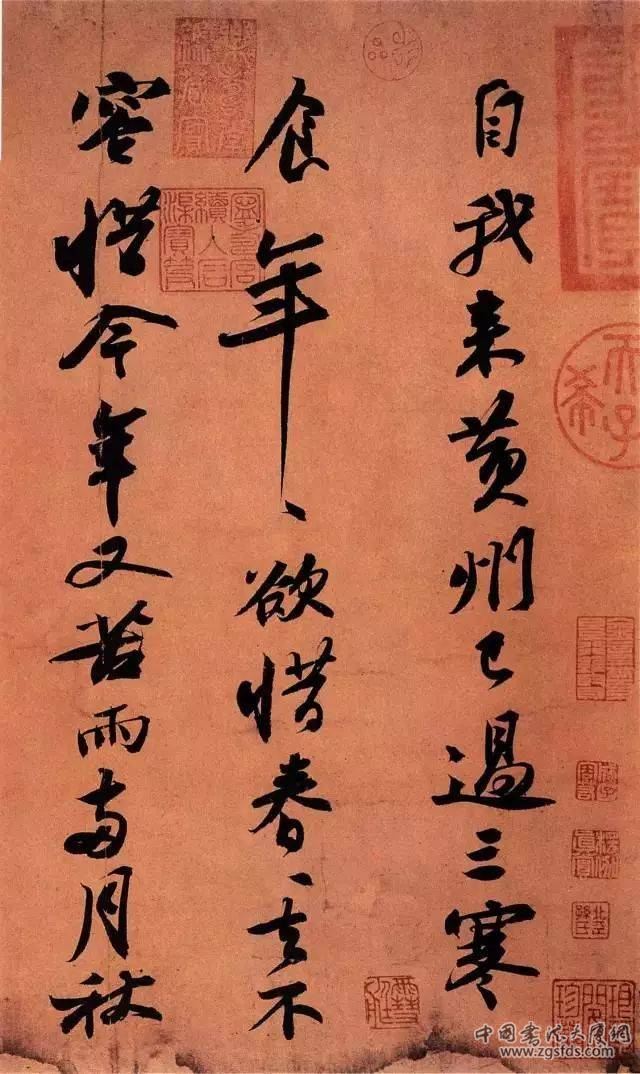 自我来黄州已過三寒
食年〻欲惜春〻去不
容惜今年又苦雨两月秋
天子
古希
中国书法大厦网
www.zgsfds.com